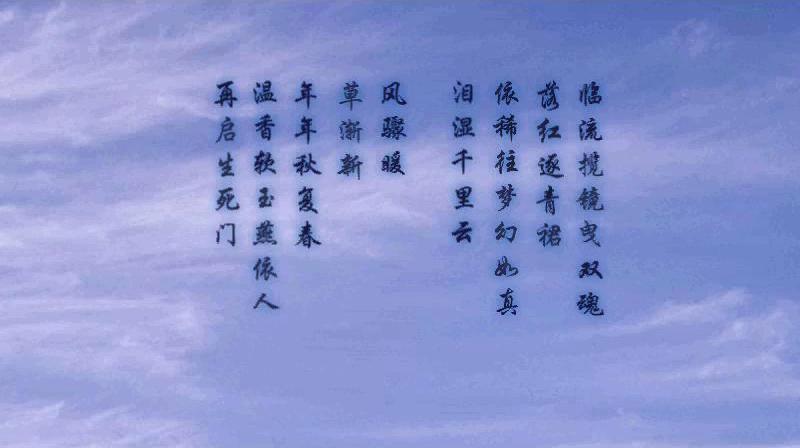 临流揽镜曳双魂
落红逐青裙
依稀往梦幻如真
泪湿千里云
风骤暖
草渐新
年年秋复春
温香软玉燕依人
再启生死门